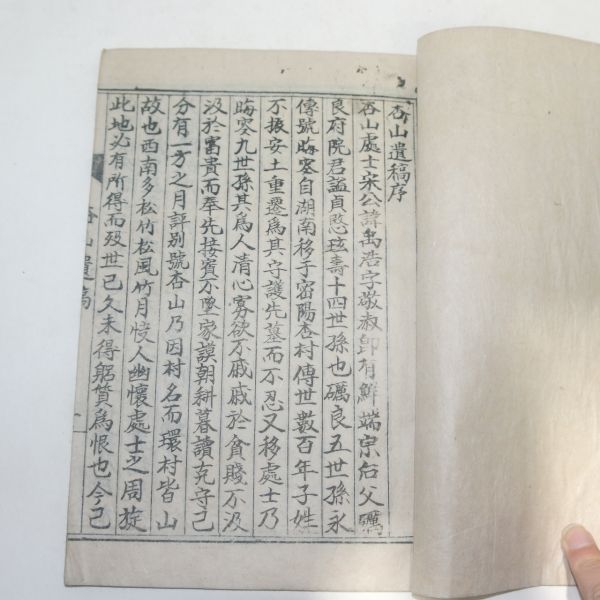 杏山遺稿序
杏山處士宋公諱禹浩字敬叔卽有鮮端宗后父礪
良府院君諡貞愍玹壽十四世孫也礪良五世孫永
傳號晦窓自湖南移于密陽杏村傳世數百年子姓
不振安土重遷爲其守護先墓而不忍又移處士乃
晦窓九世孫其爲人清心寡欲不戚戚於貧賤不汲
汲於富貴而奉先接賓不墜家謨朝耕暮讀克守己
分有一方之月評別號杏山乃因村名而環村皆山
故也西南多松竹松風竹月惱人幽懷處士之周旋
此地必有所得而歿世已久未得躬質爲恨也今己
杏山遺稿
一